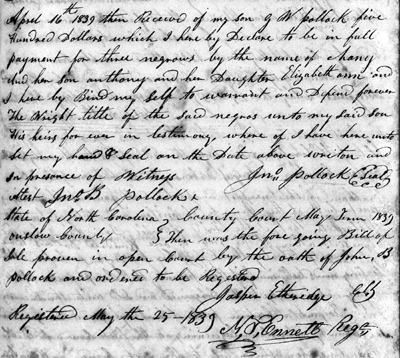 April 16th 1839 then Received of my son G W pollock five
Hundred Dollars which I here by Declare to be in full
payment for three negrows by the name of chany
And her son anthony and her Daughter Elizabeth ann and
I here by Bind my self to warrant and Defend forever
The Wright title of the said negros unto my said son
His heirs for ever in testimony, where of I have here unto
set my hand & Seal on the Date above writon and
in presance of Witness Jno. Pollock Seal
attest Jno. B Pollock
State of North Carolina County Court May Term 1839
onslow County Then was the fore going Bill of
Sale proven in open Court by the oath of John, B
pollock and ordered to be Registerd
Jasper Etheridge
Registered May the 25 - 1839
Ennett Regr